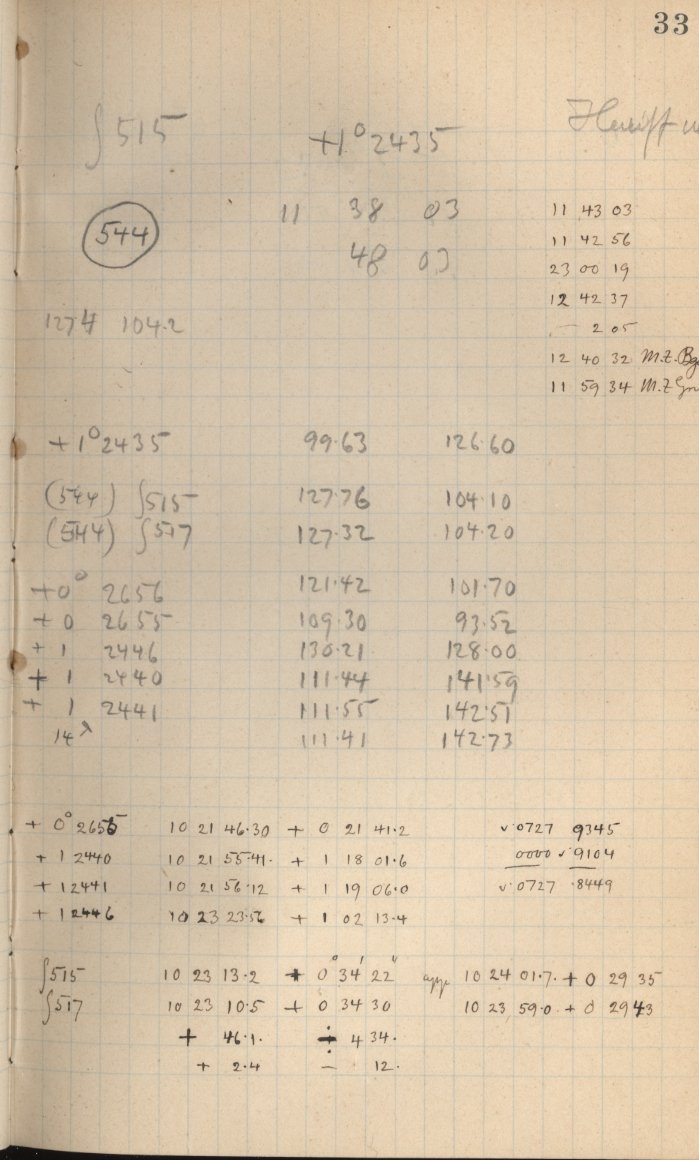 33
∫515 +1° 2435
11 38 03 11 43 03
544 48 03 11 42 56
23 00 19
12 42 37
127.4 104.2 — 2 05
12 40 32 M.Z.
11 59 34 M.Z.
+1° 2435 99.63 126.60
(544) ∫515 127.76 104.10
(544) ∫517 127.32 104.20
+0° 2656 121.42 101.70
+0 2655 109.30 93.52
+1 2446 130.21 128.00
+1 2440 111.44 141.59
+1 2441 111.55 142.51
111.41 142.73
+0° 2655 10 21 46.30 + 0 21 41.2 0727 9345
+1 2440 10 21 55.41 + 1 18 01.6 0000 9104
+1 2441 10 21 56.12 + 1 19 06.0 0727 8449
+1 2446 10 23 23.56 + 1 02 13.4
∫515 10 23 13.2 + 0° 34' 22" app 10 24 01.7 + 0 29 35
∫517 10 23 10.5 + 0 34 30 10 23 59.0 + 0 29 43
+ 46.1 ÷ 4 34.
+ 2.4 — 12.